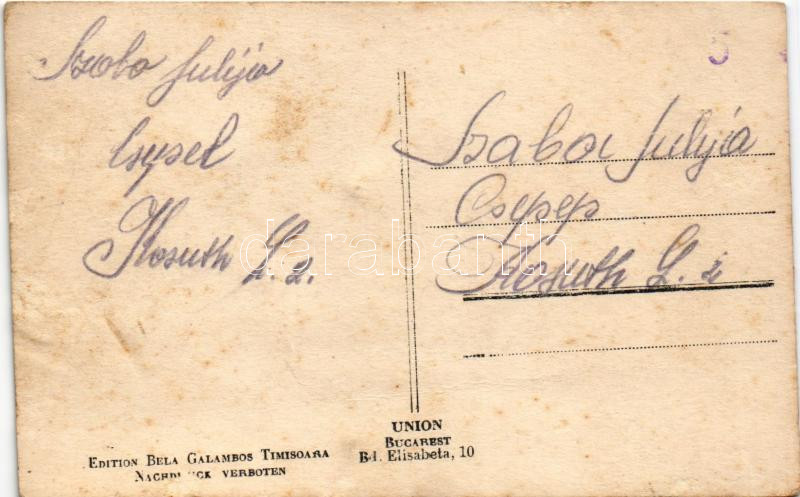 Szobo Julija
Csypel
Kosuth L. 2.
5
Szabor Julija
Csepep
Kosuth L. 2
darabanth
EDITION BELA GALAMBOS TIMISOARA
NACHDRUCK VERBOTEN
UNION
BUCAREST
Bd. Elisabeta, 10